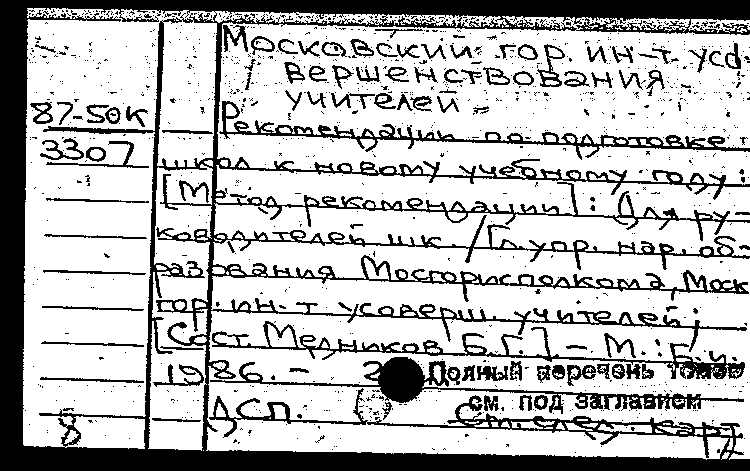 Московский гор. ин-т усо-
вершенствования
учителей
87-50К
3307
Рекомендации по подготовке
школ к новому учебному году:
[Метод. рекомендации]: Для ру-
ководителей шк. / Гл. упр. нар. об-
разования Мосгорисполкома, Моск.
гор. ин-т усоверш. учителей;
[Сост. Медников Б.Г.] – М.: Б.и.
1986. – 2
Полный перечень томов
см. под заглавием
ДСП.
См. след. карт.
8